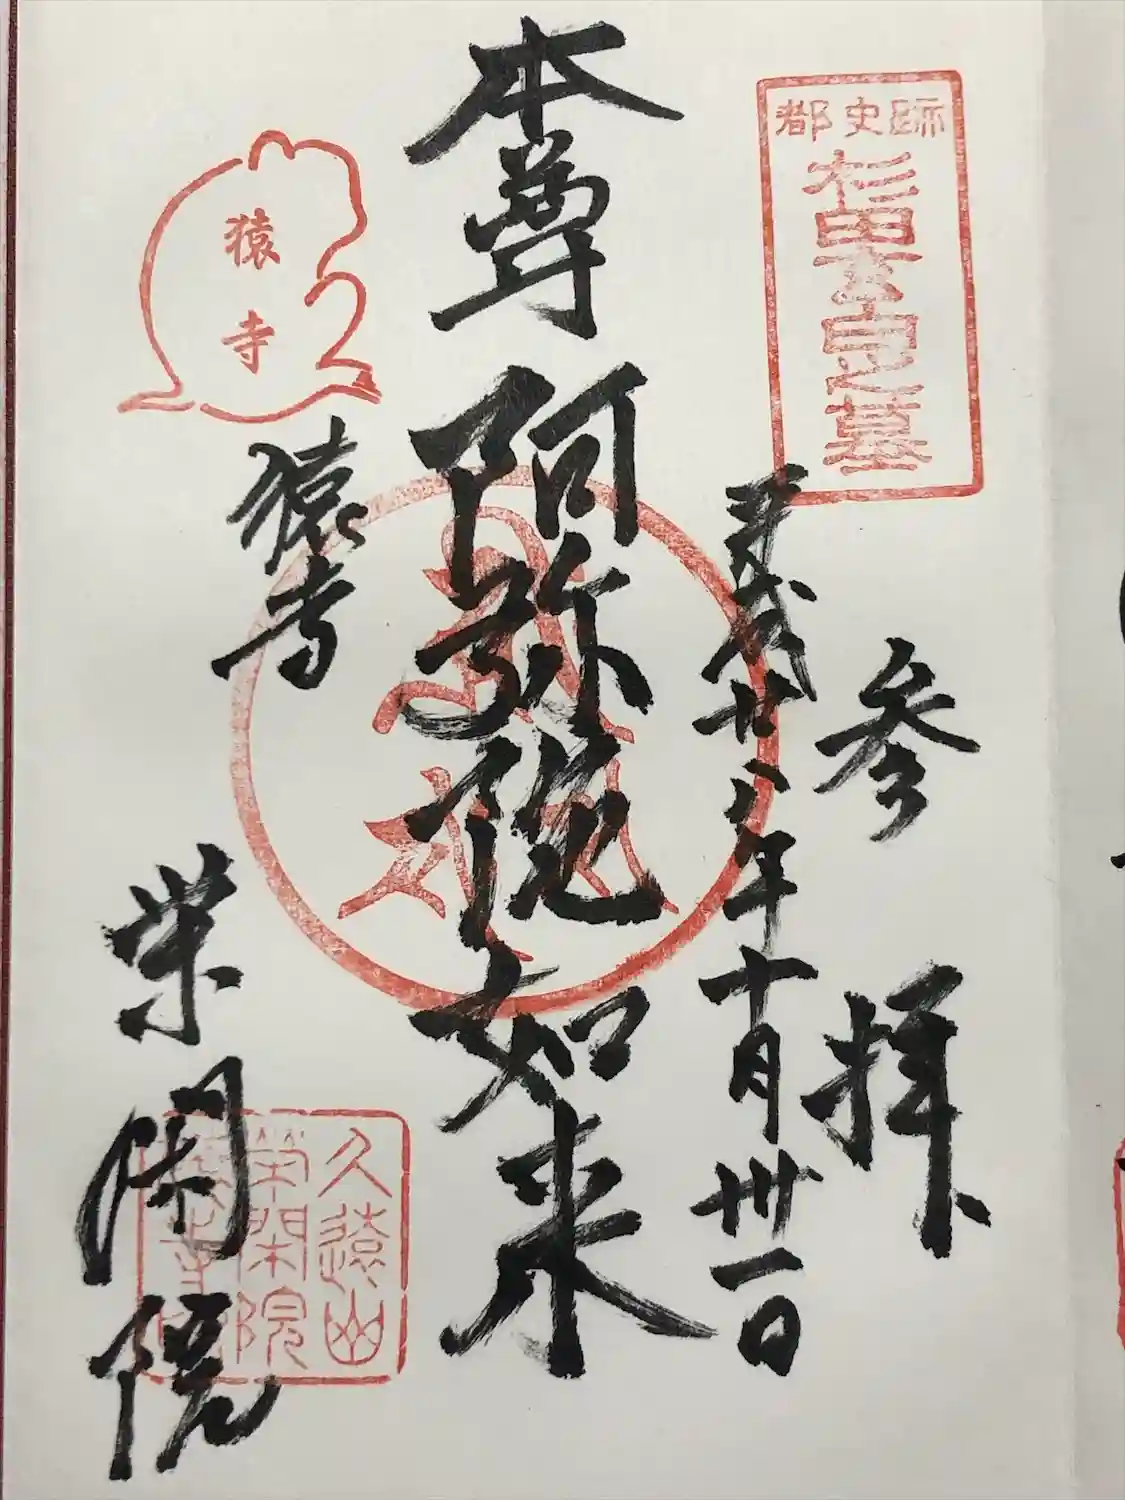 都史跡
杉田玄白之墓
参拝
平成廿八年十月卅一日
本尊阿弥陀如来
猿寺
猿寺
栄閑院
久遠山
栄閑院
猿寺印